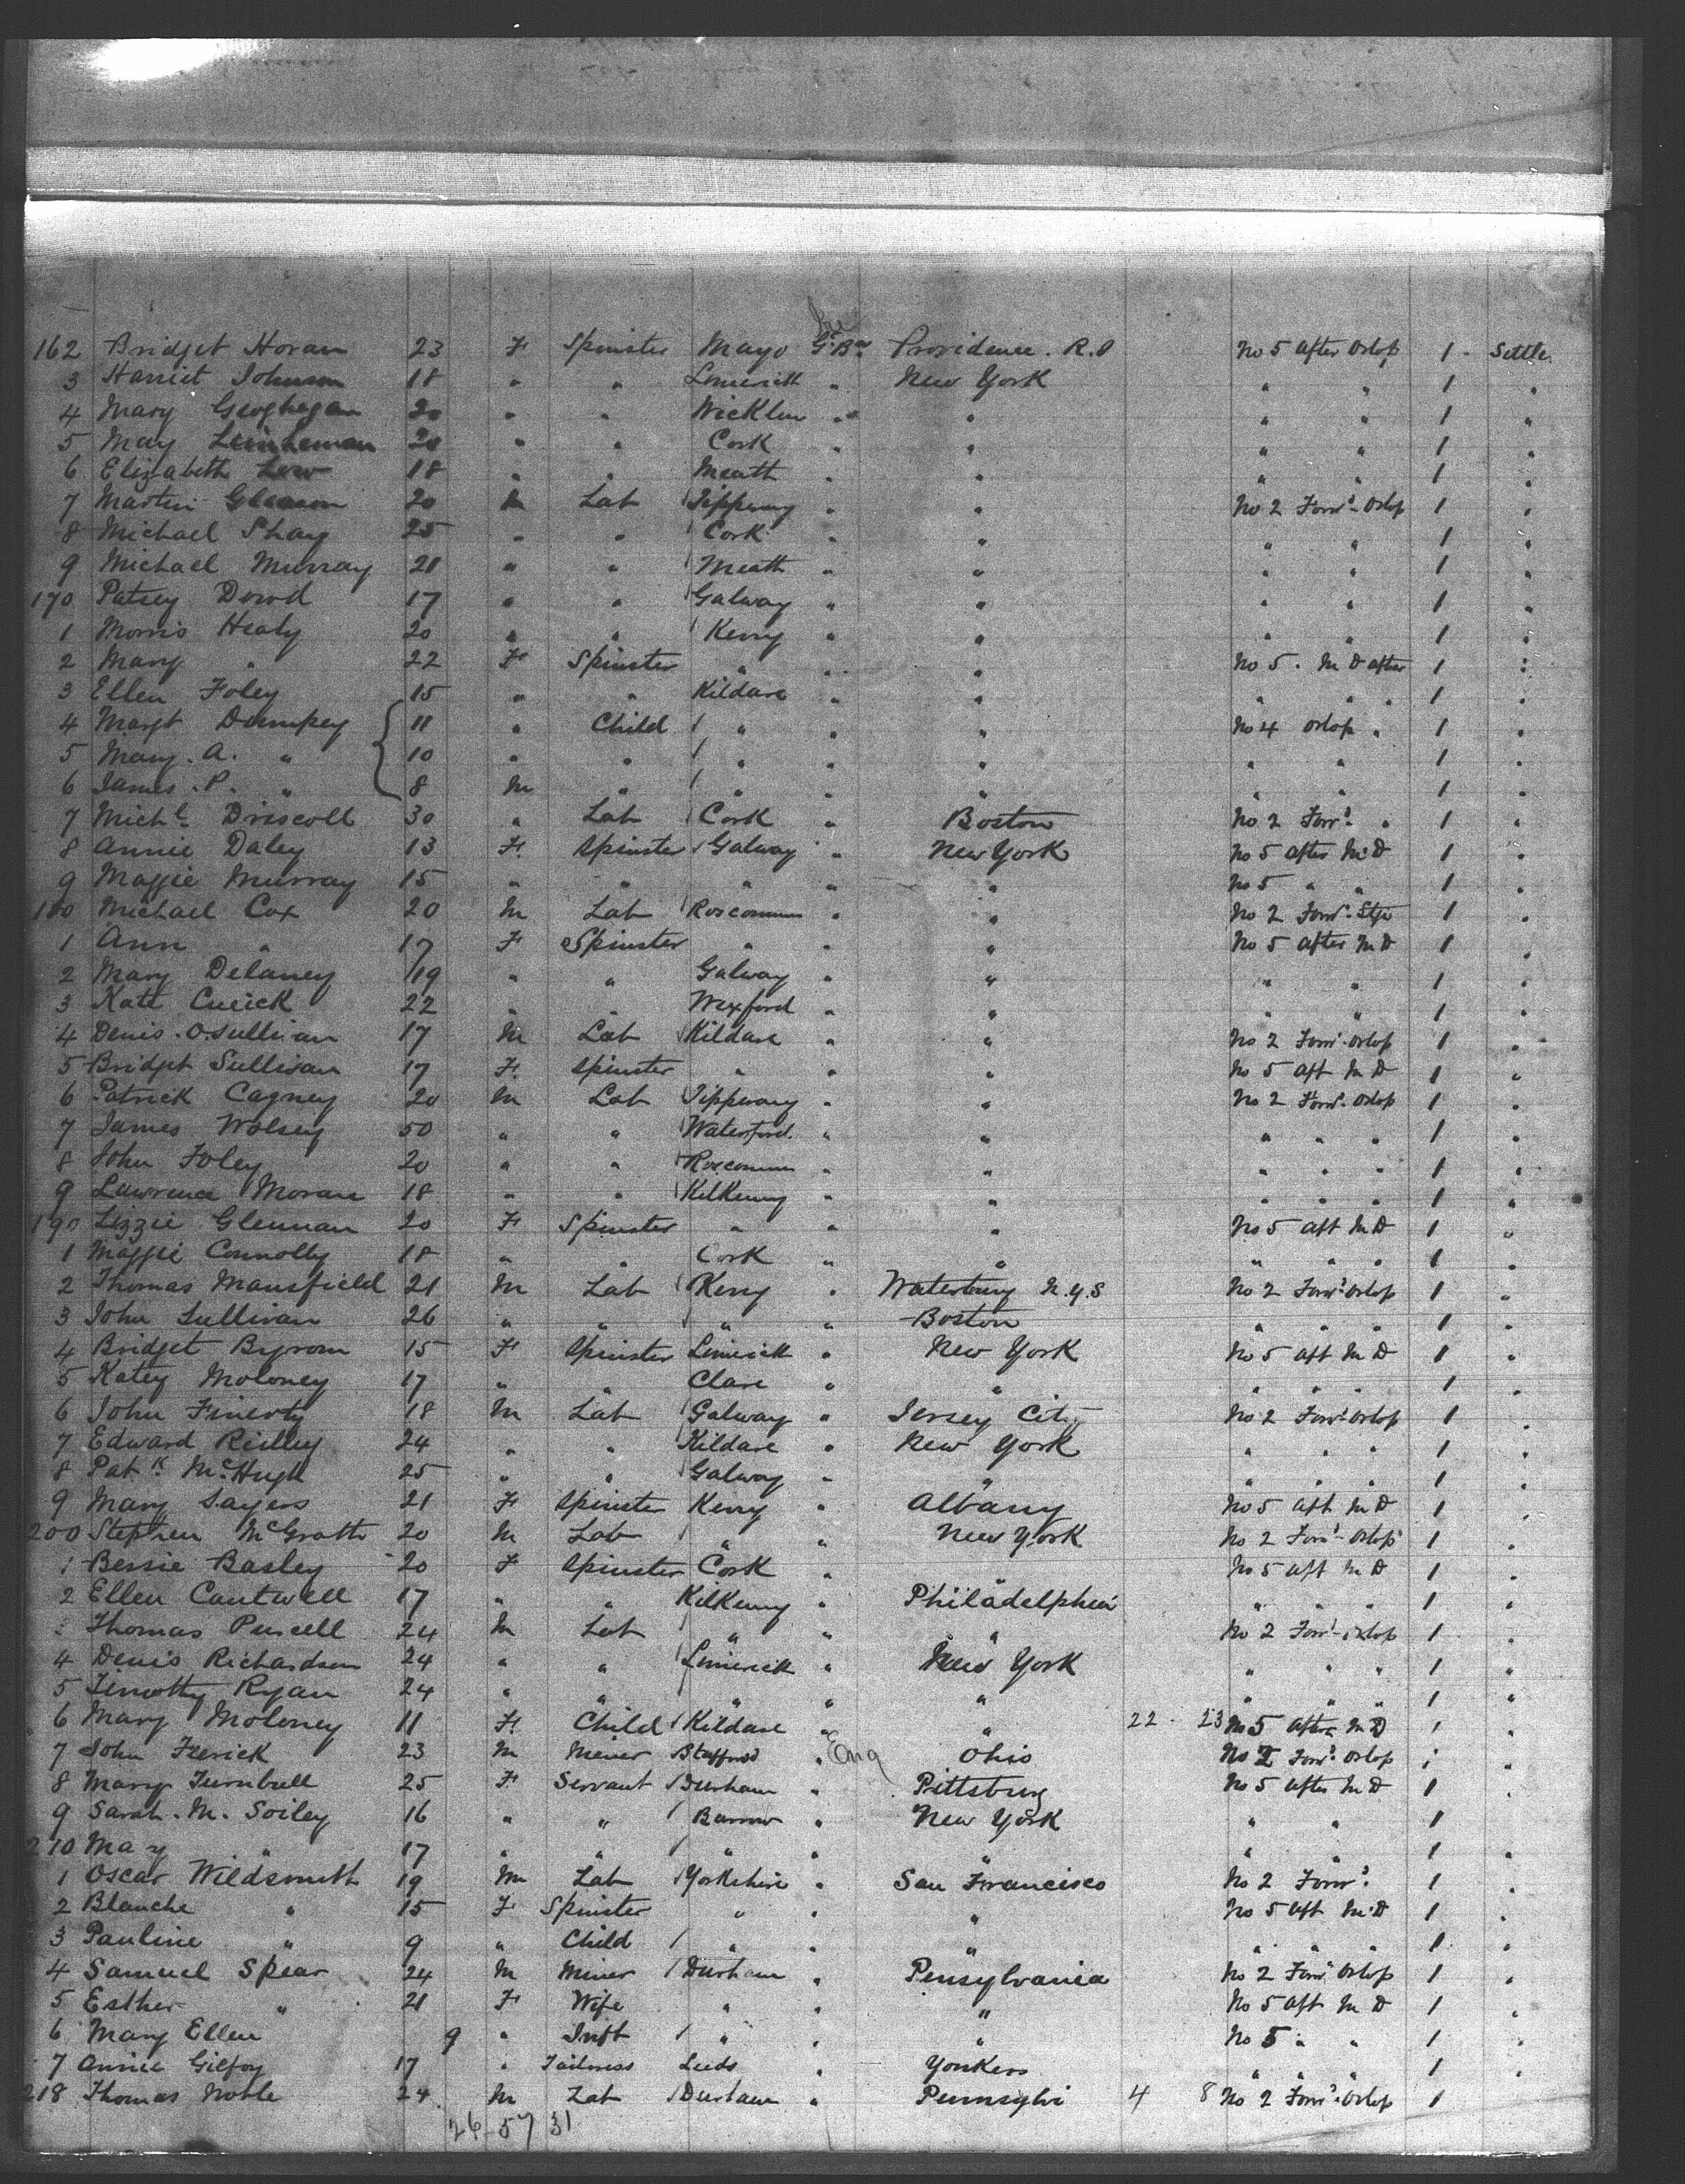 Ire
162 Bridget Horan 23 F Spinster Mayo Gt Bn Providence. R.I No 5 after Orlop 1 - Settle
3 Harriet Johnson 18 " " Limerick " New York " " 1 "
4 Mary Geoghegan 20 " " Wicklow " " " " 1 "
5 May 20 " " Cork " " " " 1 "
6 Elizabeth 18 " " Meath " " " " 1 "
7 Martin Gleason 20 M Lab Tipperary " " No 2 Forwd Orlop 1 "
8 Michael Shay 25 " " Cork " " " " 1 "
9 Michael Murray 21 " " Meath " " " " 1 "
170 Patsey Dowd 17 " " Galway " " " " 1 "
1 Morris Healy 20 " " Kerry " " " " 1 "
2 Mary " 22 F Spinster " " " No 5 . M D after 1 "
3 Ellen Foley 15 " " Kildare " " " " " 1 "
4 Margt Dempsey 11 " Child " " " No 4 Orlop " 1 "
5 Mary. A. " 10 " " " " " " " 1 "
6 James. P. " 8 M " " " " " " 1 "
7 Michl Driscoll 30 " Lab Cork " Boston No 2 Forwd " 1 "
8 Annie Daley 13 F. Spinster Galway " New York No 5 after M D 1 "
9 Maggie Murray 15 " " " " " No 5 " " 1 "
180 Michael Cox 20 M Lab Roscommon " " No 2 Forwd 1 "
1 Ann " 17 F Spinster " " " No 5 after M D 1 "
2 Mary Delaney 19 " " Galway " " " " 1 "
3 Kate Cusick 22 " " Wexford " " " " 1 "
4 Denis. O.Sullivan 17 M Lab Kildare " " No 2 Forwd Orlop 1 "
5 Bridget Sullivan 17 F. Spinster " " " No 5 aft M D 1 "
6 Patrick Cagney 20 M Lab Tipperary " " No 2 Forwd Orlop 1 "
7 James Wolsey 50 " " Waterford. " " " " " 1 "
8 John Foley 20 " " Roscommon " " " " " 1 "
9 Lawrence Moran 18 " " Kilkenny " " " " " 1 "
190 Lizzie Glennan 20 F Spinster " " " No 5 aft M D 1 "
1 Maggie Connolly 18 " " Cork " " " " " 1 "
2 Thomas Mansfield 21 M Lab Kerry " Waterbury N.Y.S No 2 Forwd Orlop 1 "
3 John Sullivan 26 " " " " Boston " " " 1 "
4 Bridget Byrom 15 F Spinster Limerick " New York No 5 aft M D 1 "
5 Katey Moloney 17 " " Clare " " " " " 1 "
6 John Finerty 18 M Lab Galway " Jersey City No 2 Forwd Orlop 1 "
7 Edward Reilley 24 " " Kildare " New York " " " 1 "
8 Patk McHugh 25 " " Galway " " " " " 1 "
9 Mary Sayers 21 F Spinster Kerry " Albany No 5 aft M D 1 "
200 Stephen McGrath 20 M Lab " " New York No 2 Forwd Orlop 1 "
1 Bessie Basley 20 F Spinster Cork " " No 5 aft M D 1 "
2 Ellen Cantwell 17 " " Kilkenny " Philadelphia " " " 1 "
Thomas Purcell 24 M Lab " " " No 2 Forwd Orlop 1 "
4 Denis Richardson 24 " " Limerick " New York " " " 1 "
5 Timothy Ryan 24 " " " " " " " " 1 "
6 Mary Moloney 11 F. Child Kildare " " 22 - 23 No 5 after M D 1 "
7 John 23 M Miner Stafford " Eng Ohio No 2 Forwd Orlop 1 "
8 Mary Turnbull 25 F Servant Durham " Pittsburg No 5 after M D 1 "
9 Sarah. M. Soiley 16 " " Barrow " New York " " 1 "
210 Mary " 17 " " " " " " " 1 "
1 Oscar Wildsmith 19 M Lab Yorkshire " San Francisco No 2 Forwd 1 "
2 Blanche " 15 F Spinster " " " No 5 aft M D 1 "
3 Pauline " 9 " Child " " " " " " 1 "
4 Samuel Spear 24 M Miner Durham " Pensylvania No 2 Forwd Orlop 1 "
5 Esther " 21 F Wife " " " No 5 aft M D 1 "
6 Mary Ellen 9 " Inft " " " No 5 " " 1 "
7 Annie Gilfoy 17 " Tailoress Leeds " Yonkers " " " 1 "
218 Thomas Noble 24 M Lab Durham " Pennsylvi 4 8 No 2 Forwd Orlop 1
26-57 31